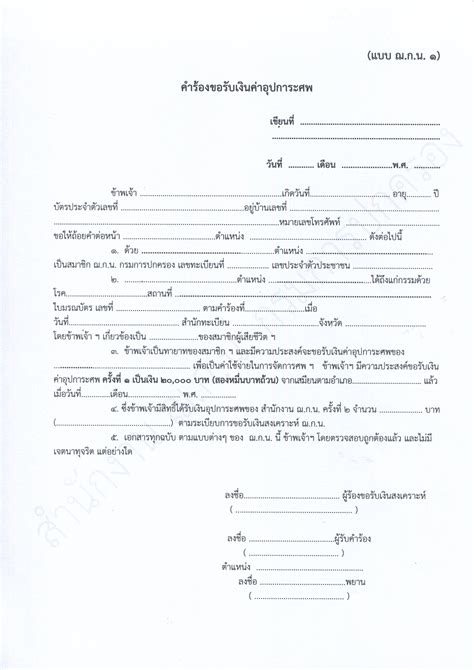 (แบบ ฌ.ก.น. ๑)
คำร้องขอรับเงินค่าอุปการะศพ
เขียนที่ ................................................
................................................
วันที่ ............ เดือน .....................พ.ศ. .............
ข้าพเจ้า ................................................เกิดวันที่........................... อายุ........... ปี
บัตรประจำตัวเลขที่ ..........................................อยู่บ้านเลขที่ ................................................
................................................หมายเลขโทรศัพท์ ................................
ขอให้ถ้อยคำต่อหน้า ................................ตำแหน่ง ................................ ดังต่อไปนี้
๑. ด้วย ................................................ตำแหน่ง ................................................
เป็นสมาชิก ฌ.ก.น. กรมการปกครอง เลขทะเบียนที่ ................... เลขประจำตัวประชาชน ................................
๒. ................................................ตำแหน่ง ................................ได้ถึงแก่กรรมด้วย
โรค...........................สถานที่ ................................................
ใบมรณบัตร เลขที่ ........................... ตามคำร้องที่...........................เมื่อ
วันที่................................ สำนักทะเบียน ................................จังหวัด ...........................
โดยข้าพเจ้า ฯ เกี่ยวข้องเป็น .................ของสมาชิกผู้เสียชีวิต ฯ
๓. ข้าพเจ้าเป็นทายาทของสมาชิก ฯ และมีความประสงค์จะขอรับเงินค่าอุปการะศพของ
................................................ เพื่อเป็นค่าใช้จ่ายในการจัดการศพ ฯ ข้าพเจ้าฯ มีความประสงค์ขอรับเงิน
ค่าอุปการะศพ ครั้งที่ ๑ เป็นเงิน ๒๐,๐๐๐ บาท (สองหมื่นบาทถ้วน) จากเสมียนตราอำเภอ........................... แล้ว
เมื่อวันที่.............เดือน................... พ.ศ. ...................
๔. ซึ่งข้าพเจ้ามีสิทธิ์ได้รับเงินอุปการะศพของ สำนักงาน ฌ.ก.น. ครั้งที่ ๒ จำนวน ................... บาท
(................................) ตามระเบียบการขอรับเงินสงเคราะห์ ฌ.ก.น.
๕. เอกสารทุกฉบับ ตามแบบต่างๆ ของ ฌ.ก.น. นี้ ข้าพเจ้าฯ โดยตรวจสอบถูกต้องแล้ว และไม่มี
เจตนาทุจริต แต่อย่างใด
ลงชื่อ................................ ผู้ร้องขอรับเงินสงเคราะห์
( ................................ )
ลงชื่อ ................................ผู้รับคำร้อง
( ................................ )
ตำแหน่ง ................................
ลงชื่อ ................................พยาน
( ................................ )